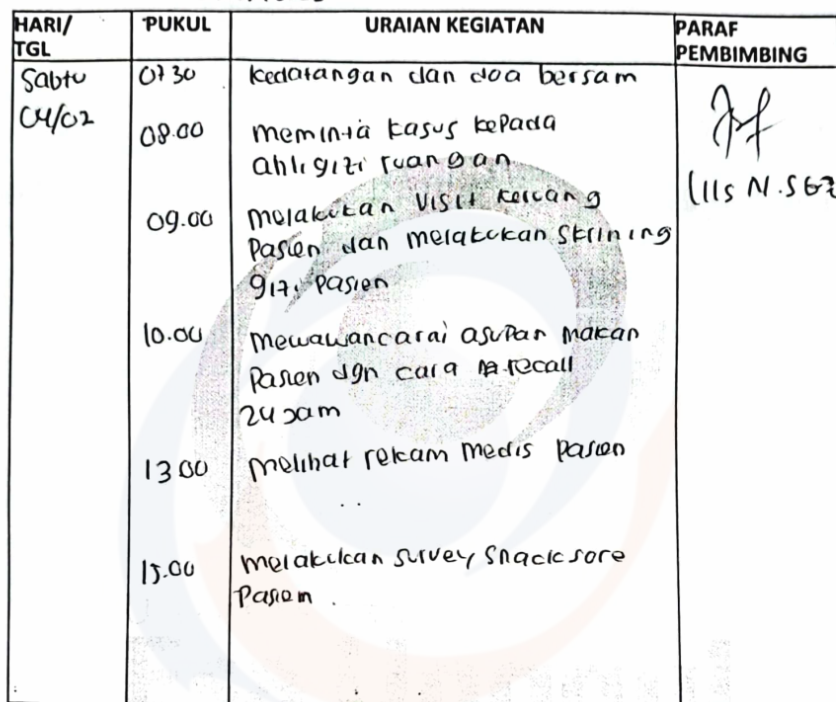 HARI/ PUKUL URAIAN KEGIATAN PARAF
TGL PEMBIMBING
Sabtu 07 30 kedatangan dan doa bersam
04/02
08.00 meminta kasus kepada
ahli gizi ruangan
09.00 melakukan visit keruang
Pasien dan melakukan skrining
gizi pasien
10.00 mewawancarai asupan makan
Pasien dgn cara recall
24 jam
13 00 melihat rekam medis pasien
15.00 melakukan survey snack sore
Pasien.